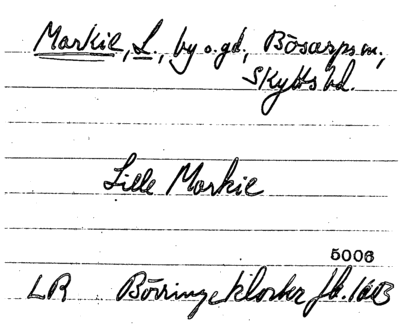 Markie, L., by o. gd, Bösarps sn,
Skytts hd.
Lille Markie
5006
LR Börringekloster jb. 1603